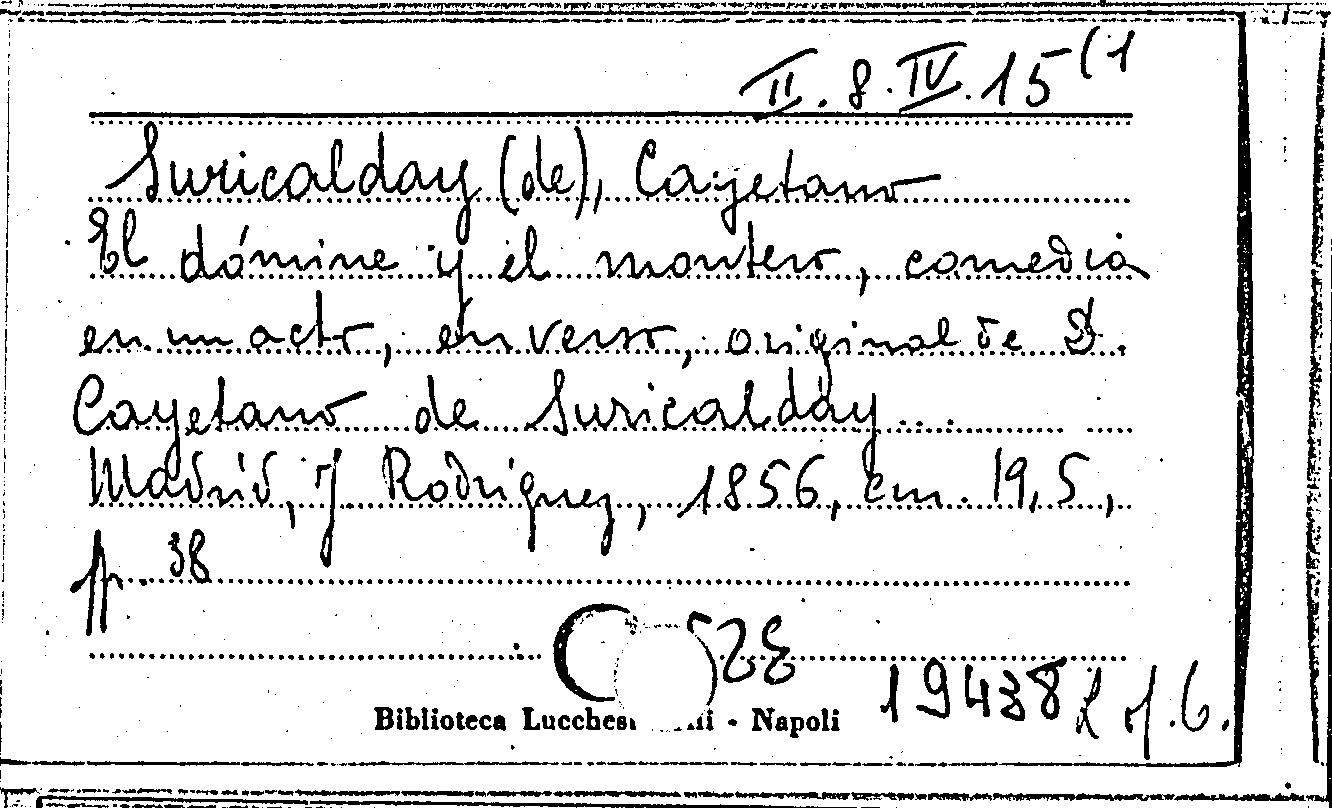 II. 8. IV. 15 (1
Suricalday (de), Cayetano
El dómine y el montero, comedia
en un acto, en verso, original de D.
Cayetano de Suricalday...
Madrid, J Rodriguez, 1856, cm. 19,5,
pp. 38
19438
Biblioteca - Napoli